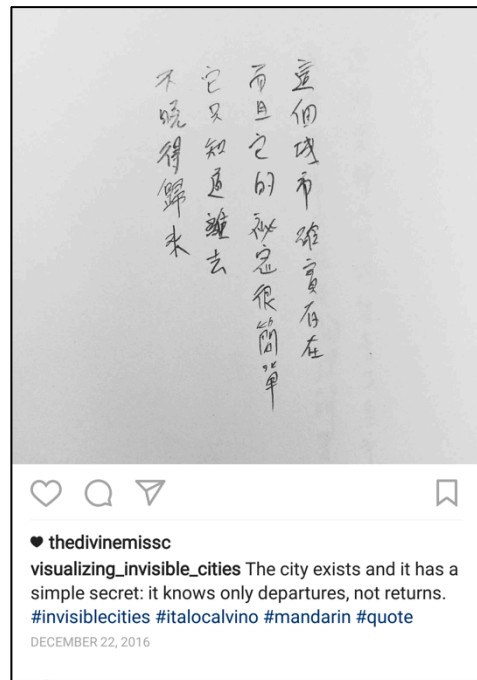 這個城市確實存在
而且它的祕密很簡單
它只知道離去
不曉得歸來
thedivinemissc
visualizing_invisible_cities The city exists and it has a
simple secret: it knows only departures, not returns.
#invisiblecities #italocalvino #mandarin #quote
DECEMBER 22, 2016